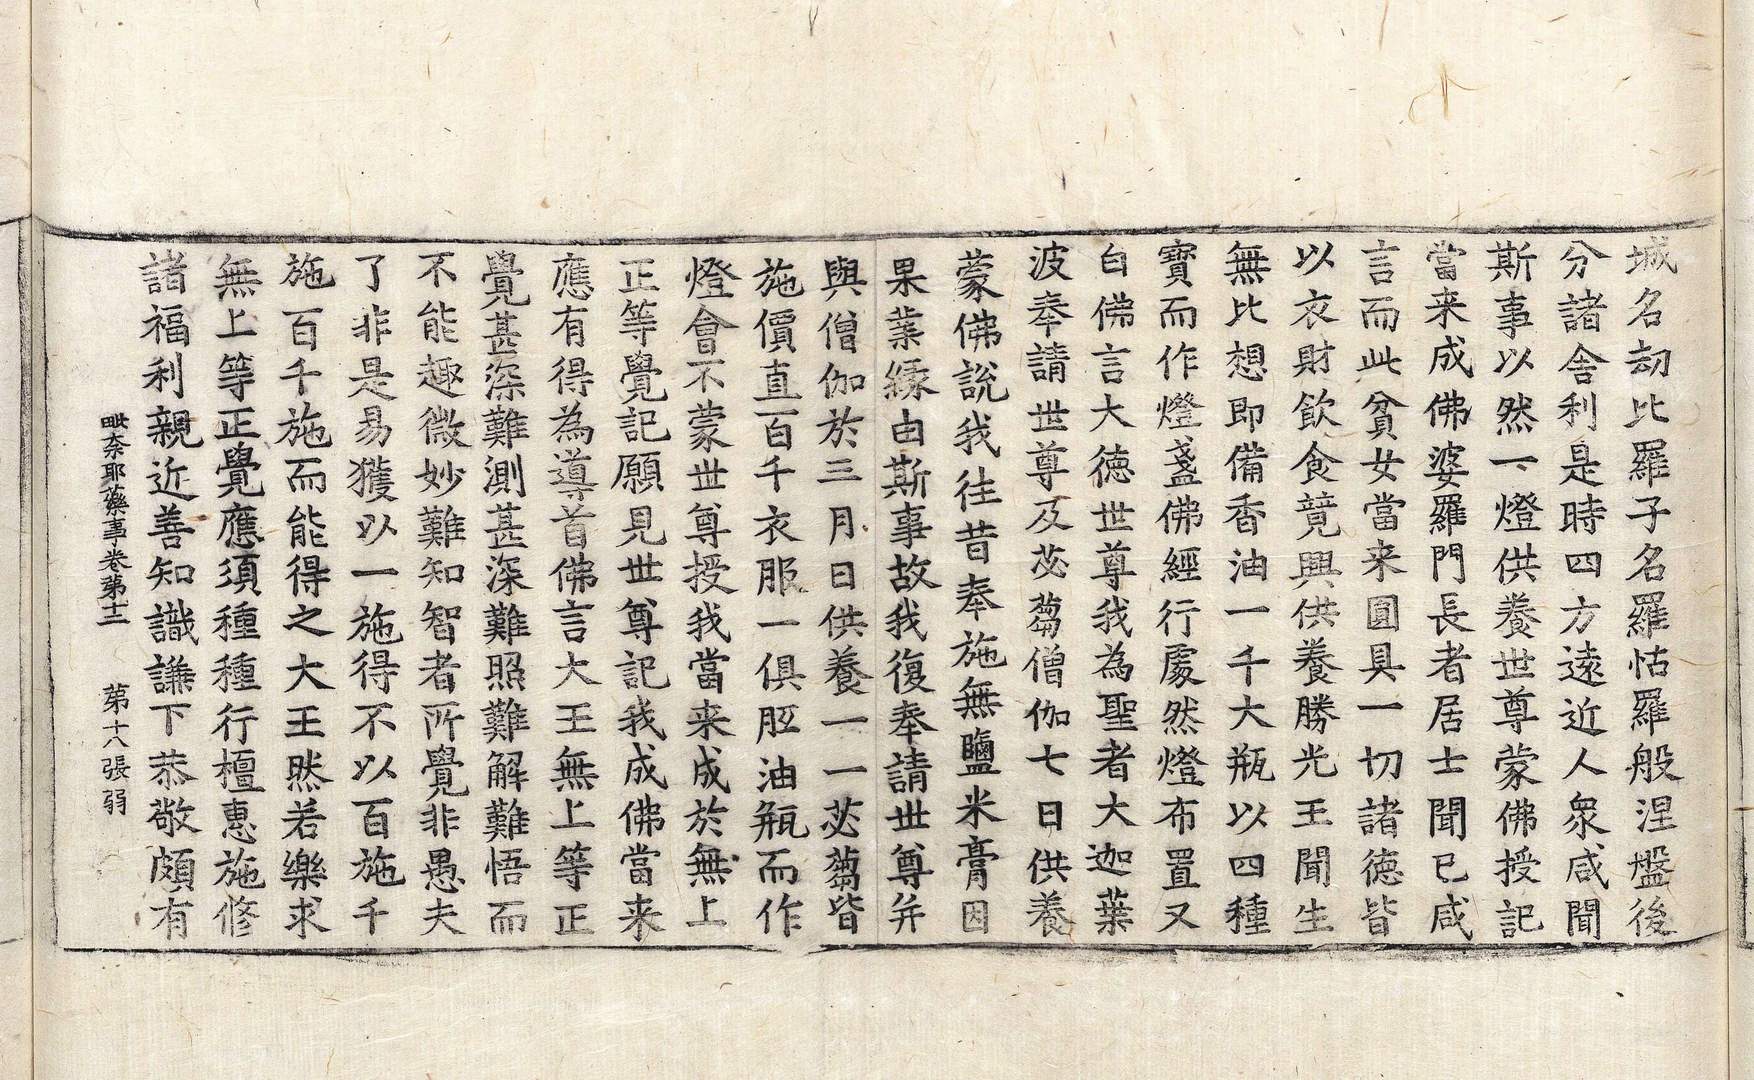 城名劫比羅子名羅怙羅般涅盤後
分諸舍利是時四方遠近人衆咸聞
斯事以然一燈供養世尊蒙佛授記
當来成佛婆羅門長者居士聞已咸
言而此貧女當来圓具一切諸徳皆
以衣財飲食競興供養勝光王聞生
無比想即備香油一千大瓶以四種
寶而作燈盞佛經行處然燈布置又
白佛言大徳世尊我為聖者大迦葉
波奉請世尊及苾蒭僧伽七日供養
蒙佛說我往昔奉施無鹽米膏因
果業緣由斯事故我復奉請世尊并
與僧伽於三月日供養一一苾蒭皆
施價直百千衣服一俱胝油瓶而作
燈會不蒙世尊授我當来成於無上
正等覺記願見世尊記我成佛當来
應有得為導首佛言大王無上等正
覺甚深難測甚深難照難解難悟而
不能趣微妙難知智者所覺非愚夫
了非是易獲以一施得不以百施千
施百千施而能得之大王然若樂求
無上等正覺應須種種行檀惠施修
諸福利親近善知識謙下恭敬頗有
毗奈耶藥事卷第十二 第十八張 弱